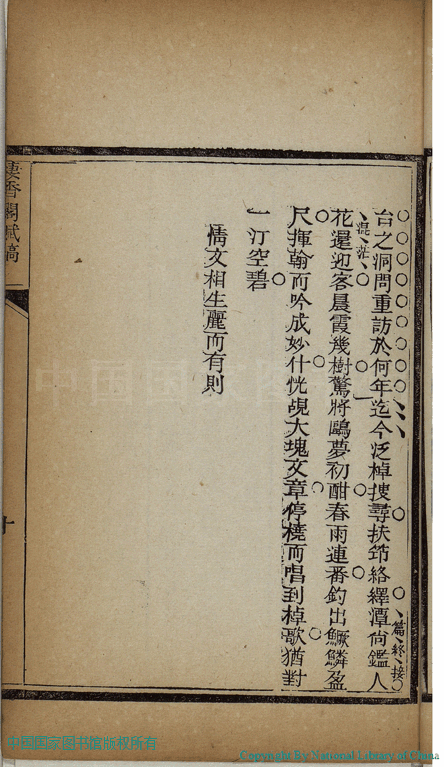 台之洞問重訪於何年迄今泛棹搜尋扶笻絡繹潭尚鑑人
篇終接
混茫
花還迎客晨霞幾樹驚將鷗夢初酣春雨連番釣出鱖鱗盈
尺揮翰而吟成妙什恍覩大塊文章停橈而唱到棹歌猶對
一汀空碧
情文相生麗而有則
香閣賦稿
十
中国国家图
中国国家图书馆版权所有
Copyright By National Library of China